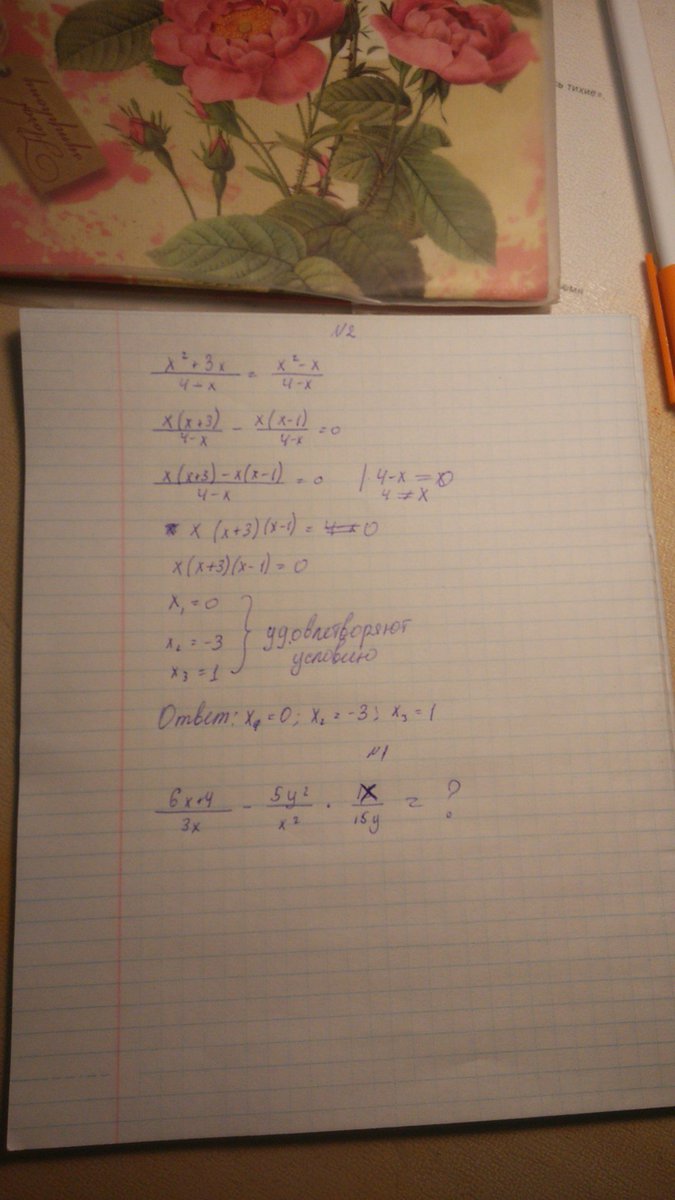 ь тихие».
емя
№2
x² + 3x / 4 - x = x² - x / 4 - x
x(x+3) / 4-x - x(x-1) / 4-x = 0
x(x+3) - x(x-1) / 4-x = 0 | 4-x ≠ 0
4 ≠ x
x (x+3)(x-1) = 0
x(x+3)(x-1) = 0
x₁ = 0
x₂ = -3
x₃ = 1
удовлетворяют
условию
Ответ: x₁ = 0; x₂ = -3; x₃ = 1
№1
6x+4 / 3x - 5y² / x² · x / 15y = ?